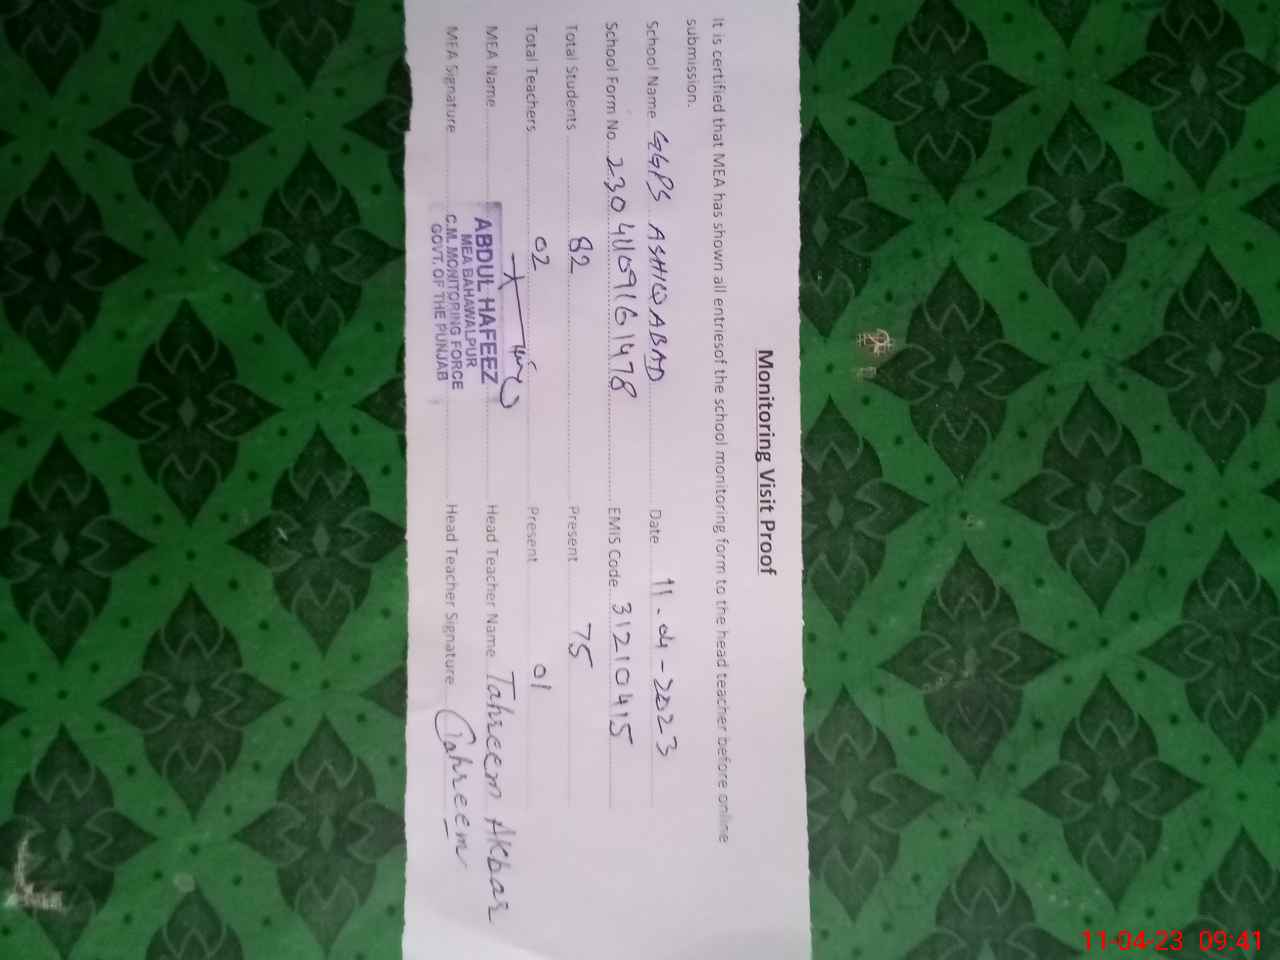 Monitoring Visit Proof
It is certified that MEA has shown all entriesof the school monitoring form to the head teacher before online
submission.
School Name GGPS ASHIQABAD Date 11-04-2023
School Form No. 23041109161478 EMIS Code 31210415
Total Students 82 Present 75
Total Teachers 02 Present 01
MEA Name Head Teacher Name Tahreem Akbar
MEA Signature Head Teacher Signature Tahreem
ABDUL HAFEEZ
MEA BAHAWALPUR
C.M. MONITORING FORCE
GOVT. OF THE PUNJAB
11-04-23 09:41